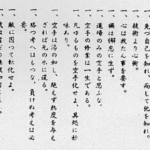 一、先づ自己を知れ、而して他を知れ。
一、技術より心術。
一、心は放たん事を要す。
一、禍は懈怠に生ず。
一、道場のみの空手と思ふな。
一、空手の修業は一生である。
一、凡ゆるものを空手化せよ、其処に妙
味あり。
一、空手は湯の如し、絶えず熱度を与へ
ざれば元の水に還る。
一、勝つ考へはもつな、負けぬ考えは必
要。
一、敵に因って転化せよ。